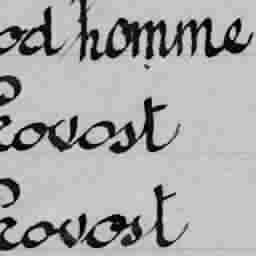 od'homme
Provost
Provost